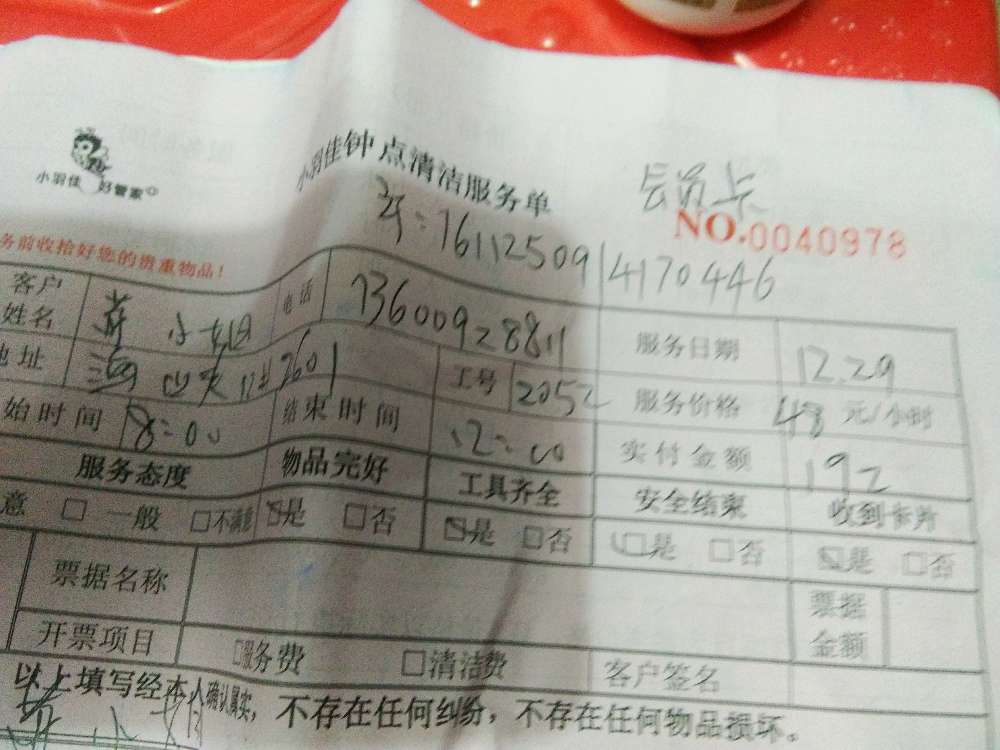 小羽佳 好管家
小羽佳钟点清洁服务单
会员卡
NO.0040978
务前收拾好您的贵重物品!
16112509 14170446
客户姓名 小姐 电话 13600928811 服务日期 12.29
地址 2601 工号 2052 服务价格 48 元/小时
始时间 8:00 结束时间 12:00 实付金额 192
服务态度 物品完好 工具齐全 安全结束 收到卡片
意 □ 一般 □不满意 □是 □否 □是 □否 □是 □否 □是 □否
票据名称 票据金额
开票项目 □服务费 □清洁费 客户签名
以上填写经本人确认属实，不存在任何纠纷，不存在任何物品损坏。